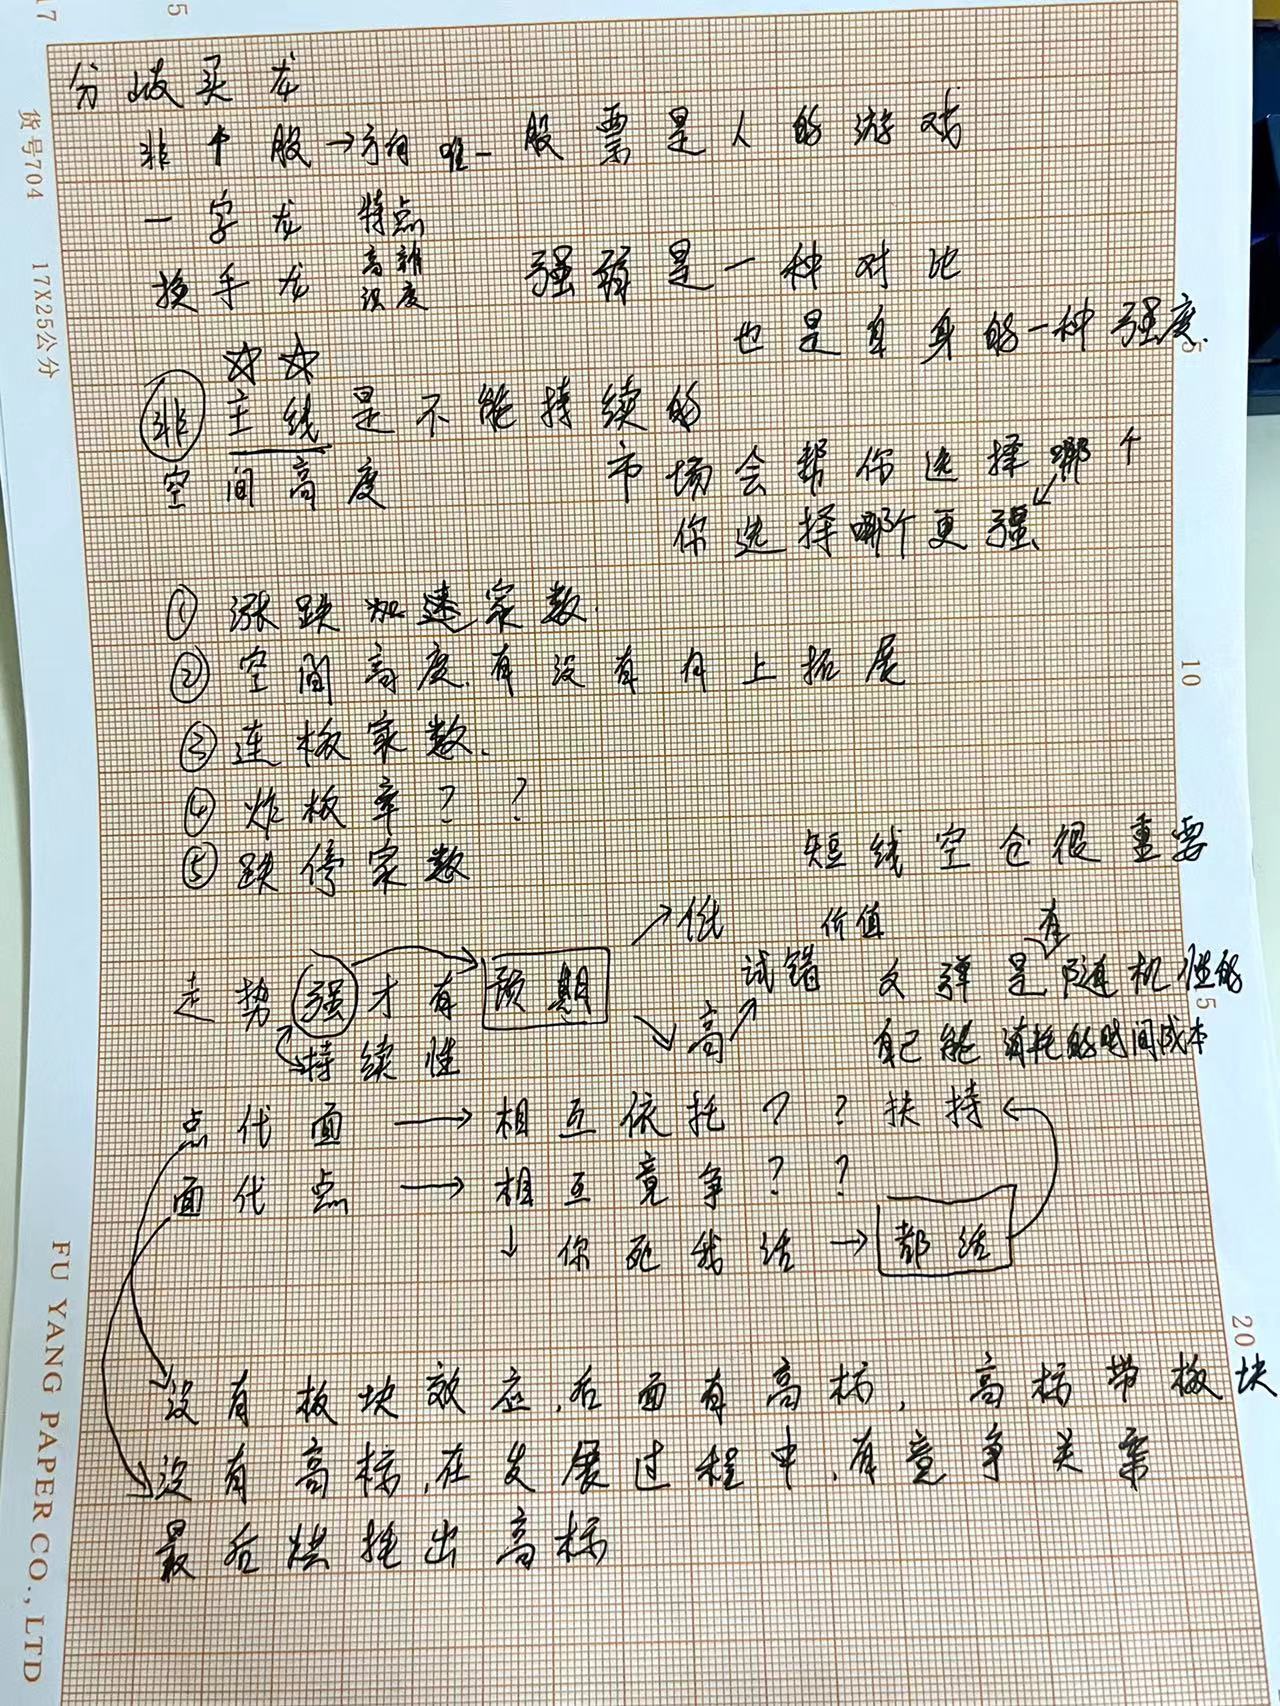 17
5
货号704 17X25公分
分歧买龙
非个股→方向 唯一 股票是人的游戏
一字龙 特点
换手龙 高辨识度
强弱是一种对比
也是自身的一种强度.
非主线是不能持续的
空间高度
市场会帮你选择哪个
你选择哪个更强
5
① 涨跌加速家数.
② 空间高度.有没有向上拓展
10
③ 连板家数.
④ 炸板率??
⑤ 跌停家数
短线空仓很重要
走势强才有预期
持续性
低
高
试错
价值
有
反弹是随机性的
5
自己能消耗的时间成本
点代面→相互依托??扶持
面代点→相互竞争??
↓你死我活→都活
没有板块效应.后面有高标,高标带板块
没有高标.在发展过程中.有竞争关系
最后烘托出高标
20
FU YANG PAPER CO., LTD